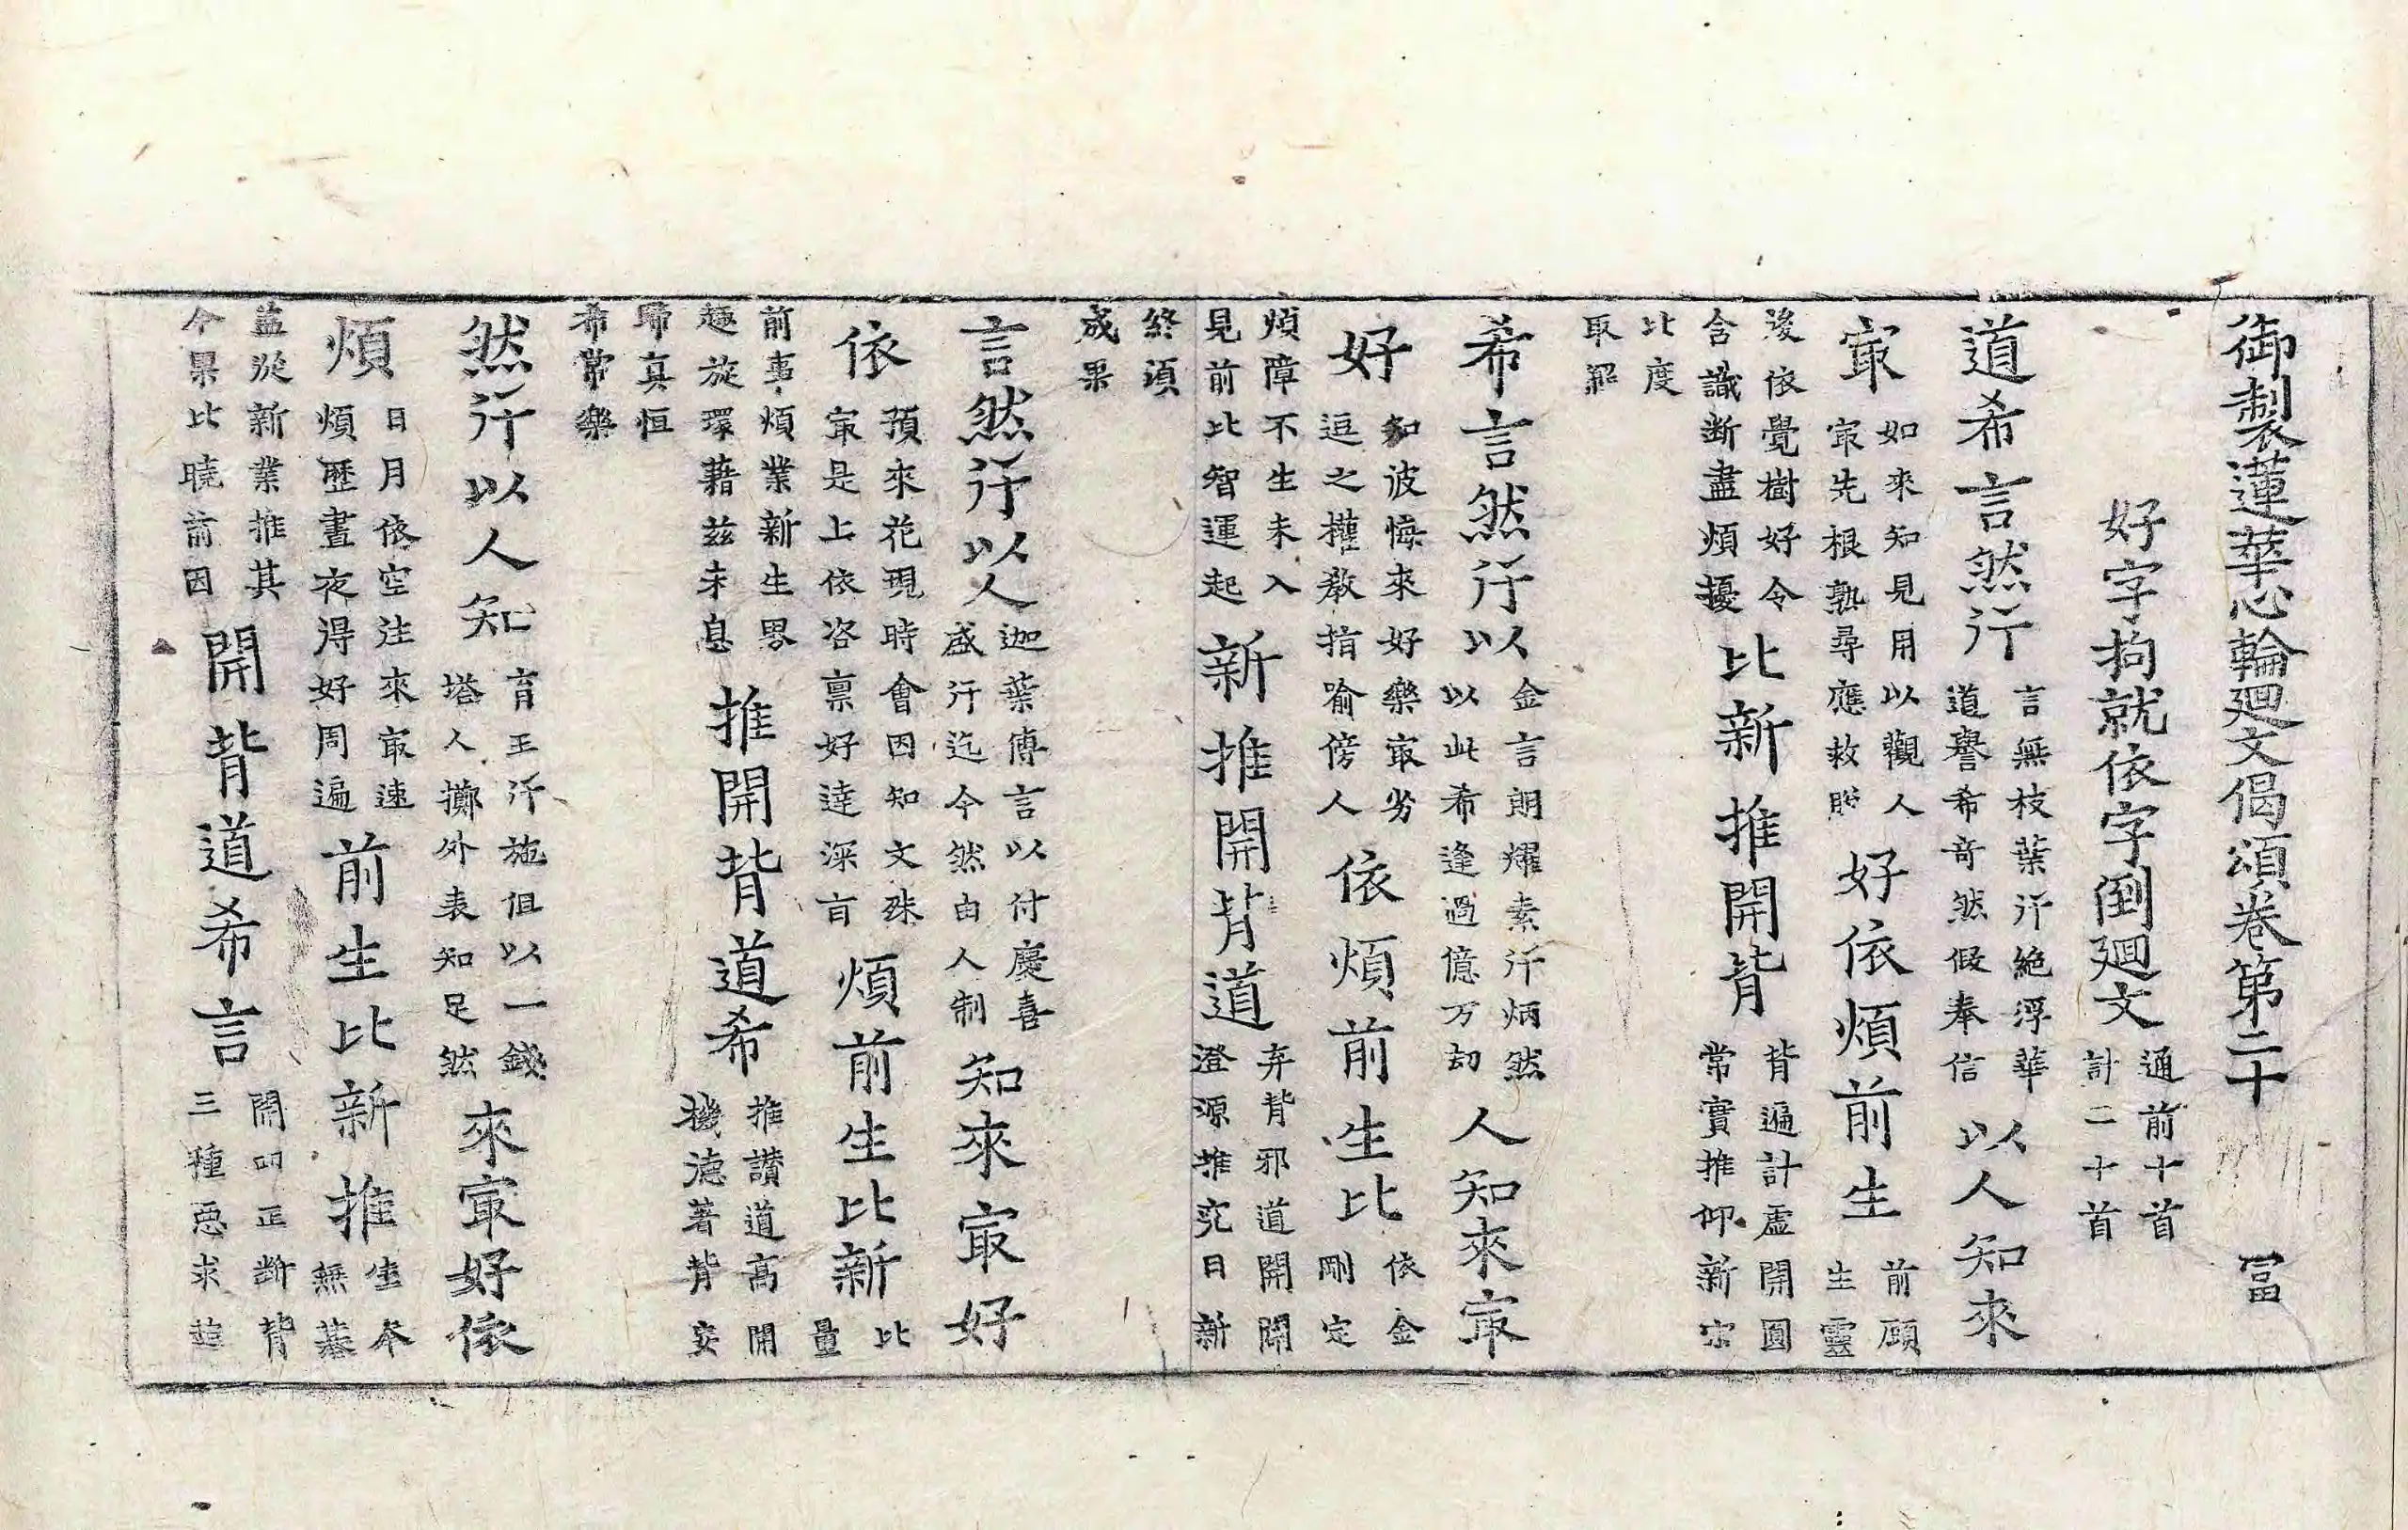 御製蓮華心輪廻文偈頌卷第二十 冨
好字拘就依字倒廻文
通前十首
計二十首
道希言然行
言無枝葉行絶浮華
道譽希奇然假奉信
以人知來
冣
如來知見用以觀人
冣先根熟尋應救
好依煩前生
前願
生靈
後依覺樹好令
含識断盡煩擾
比新推開背
背遍計虛開圓
常實推仰新宗
比度
取
希言然行以
金言朗耀素行炳然
以此希逢過億万刧
人知來冣
好
知彼悔來好樂冣劣
逗之權教指喻傍人
依煩前生比
依金
剛定
煩障不生未入
見前比智運起
新推開背道
弃背邪道開闢
澄源推究日新
終湏
成果
言然行以人
迦葉傳言以付慶喜
盛行迄今然由人制
知來冣好
依
預來花現時會因知文殊
冣是上依咨禀好逹深盲
煩前生比新
比
量
前事煩業新生界
趣旋環藉兹未息
推開背道希
推讃道高開
機德著背妄
歸真恒
希常樂
然行以人知
育王行施但以一錢
塔人擲外表知足然
來冣好依
煩
日月依空注來冣速
煩歷晝夜得好周遍
前生比新推
生今
無
盖從新業推其
今果比曉前因
開背道希言
開四正断背
三種惡求